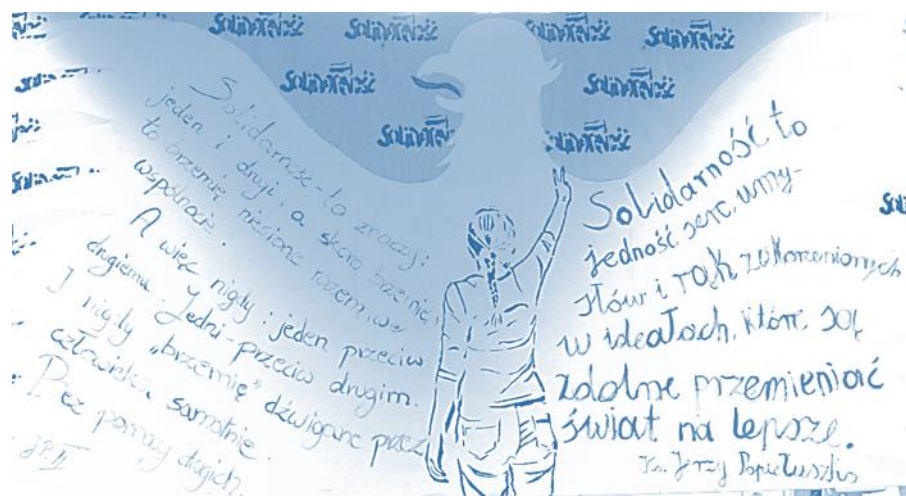 Solidarność Solidarność Solidarność Solidarność
Solidarność Solidarność Solidarność
Solidarność Solidarność
Solidarność
Sol
Solidarność - to znaczy:
jeden i drugi, a skoro brzemię,
to brzemię niesione razem, we
wspólnocie.
A więc nigdy: jeden przeciw
drugiemu. Jedni - przeciw drugim.
I nigdy „brzemię” dźwigane przez
człowieka samotnie.
Bez pomocy drugich.
JP II
Solidarność to
jedność serc, umy-
słów i rąk zakorzenionych
w ideałach, które są
zdolne przemieniać
świat na lepsze.
Ks. Jerzy Popiełuszko